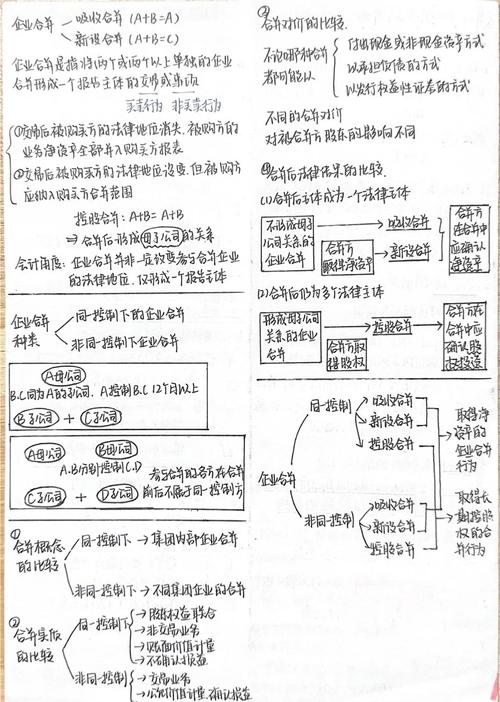 企业合并
吸收合并 (A+B=A)
新设合并 (A+B=C)
企业合并是指将两个或两个以上单独的企业
合并形成一个报告主体的交易或事项
买卖行为 非买卖行为
①交易后被购买方的法律地位消失,被购方的
业务净资产全部并入购买方报表
②交易后被购买方的法律地位没变,但被购方
应纳入购买方合并范围
控股合并:A+B=A+B
⇒合并后形成母子公司的关系
会计角度:企业合并并非一定改变参与合并企业
的法律地位,仅形成一个报告主体
企业合并
种类
同一控制下的企业合并
非同一控制下企业合并
A母公司
B.C同为A的子公司.A控制B.C 12个月以上
B子公司 + C子公司
A母公司 B母公司
A.B分别控制C.D
参与合并的各方在合并
前后不属于同一控制方
C子公司 + D子公司
①
合并概念
的比较
同一控制下→集团内部企业合并
非同一控制下→不同集团企业的合并
②
合并实质
的比较
同一控制下
→股东权益联合
→非交易业务
→账面价值计量
→不确认损益
非同一控制
→交易业务
→公允价值计量,确认损益
③
合并对价的比较.
不论哪种合并
都可能以
付出现金或非现金资产方式
以承担负债的方式
以发行权益性证券的方式
不同的合并对价
对被合并方股东的影响不同
④合并后法律结果的比较.
(1)合并后主体成为一个法律主体
不形成母子
公司关系的
企业合并
吸收合并
合并方
取得净资产
新设合并
合并方
在合并中
应确认
净资产
(2)合并后仍为多个法律主体
形成母子公司
关系的企业
合并
控股合并
合并方取
得股权
合并方在
合并中应
确认股
权投资
企业合并
同一控制
吸收合并
新设合并
控股合并
非同一控制
吸收合并
新设合并
控股合并
取得净
资产的
企业合并
行为
取得长
期控股
权的合
并行为